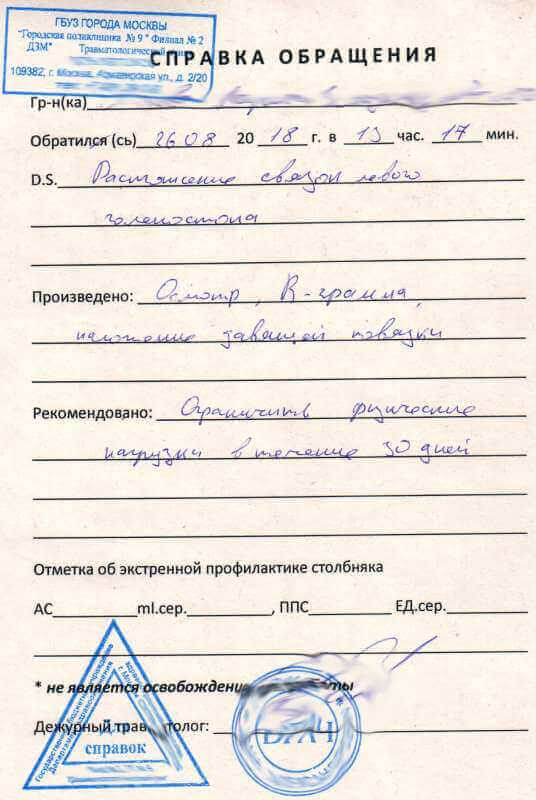 ГБУЗ ГОРОДА МОСКВЫ
"Городская поликлиника № 9" Филиал № 2
ДЗМ" Травматологический
109382, г. Москва, ул., д. 2/20
СПРАВКА ОБРАЩЕНИЯ
Гр-н(ка)
Обратился (сь) 26 08 20 18 г. в 13 час. 17 мин.
D.S. Растяжение связок левого
голеностопа
Произведено: Осмотр, R-грамма,
наложение давящей повязки
Рекомендовано: Ограничить физические
нагрузки в течение 30 дней
Отметка об экстренной профилактике столбняка
АС ml.сер. , ППС ЕД.сер.
* не является освобождени
Дежурный трав толог:
Государственное бюджетное учреждение
Департамент здравоохранения
г. Москвы
Для
справок
ВРАЧ